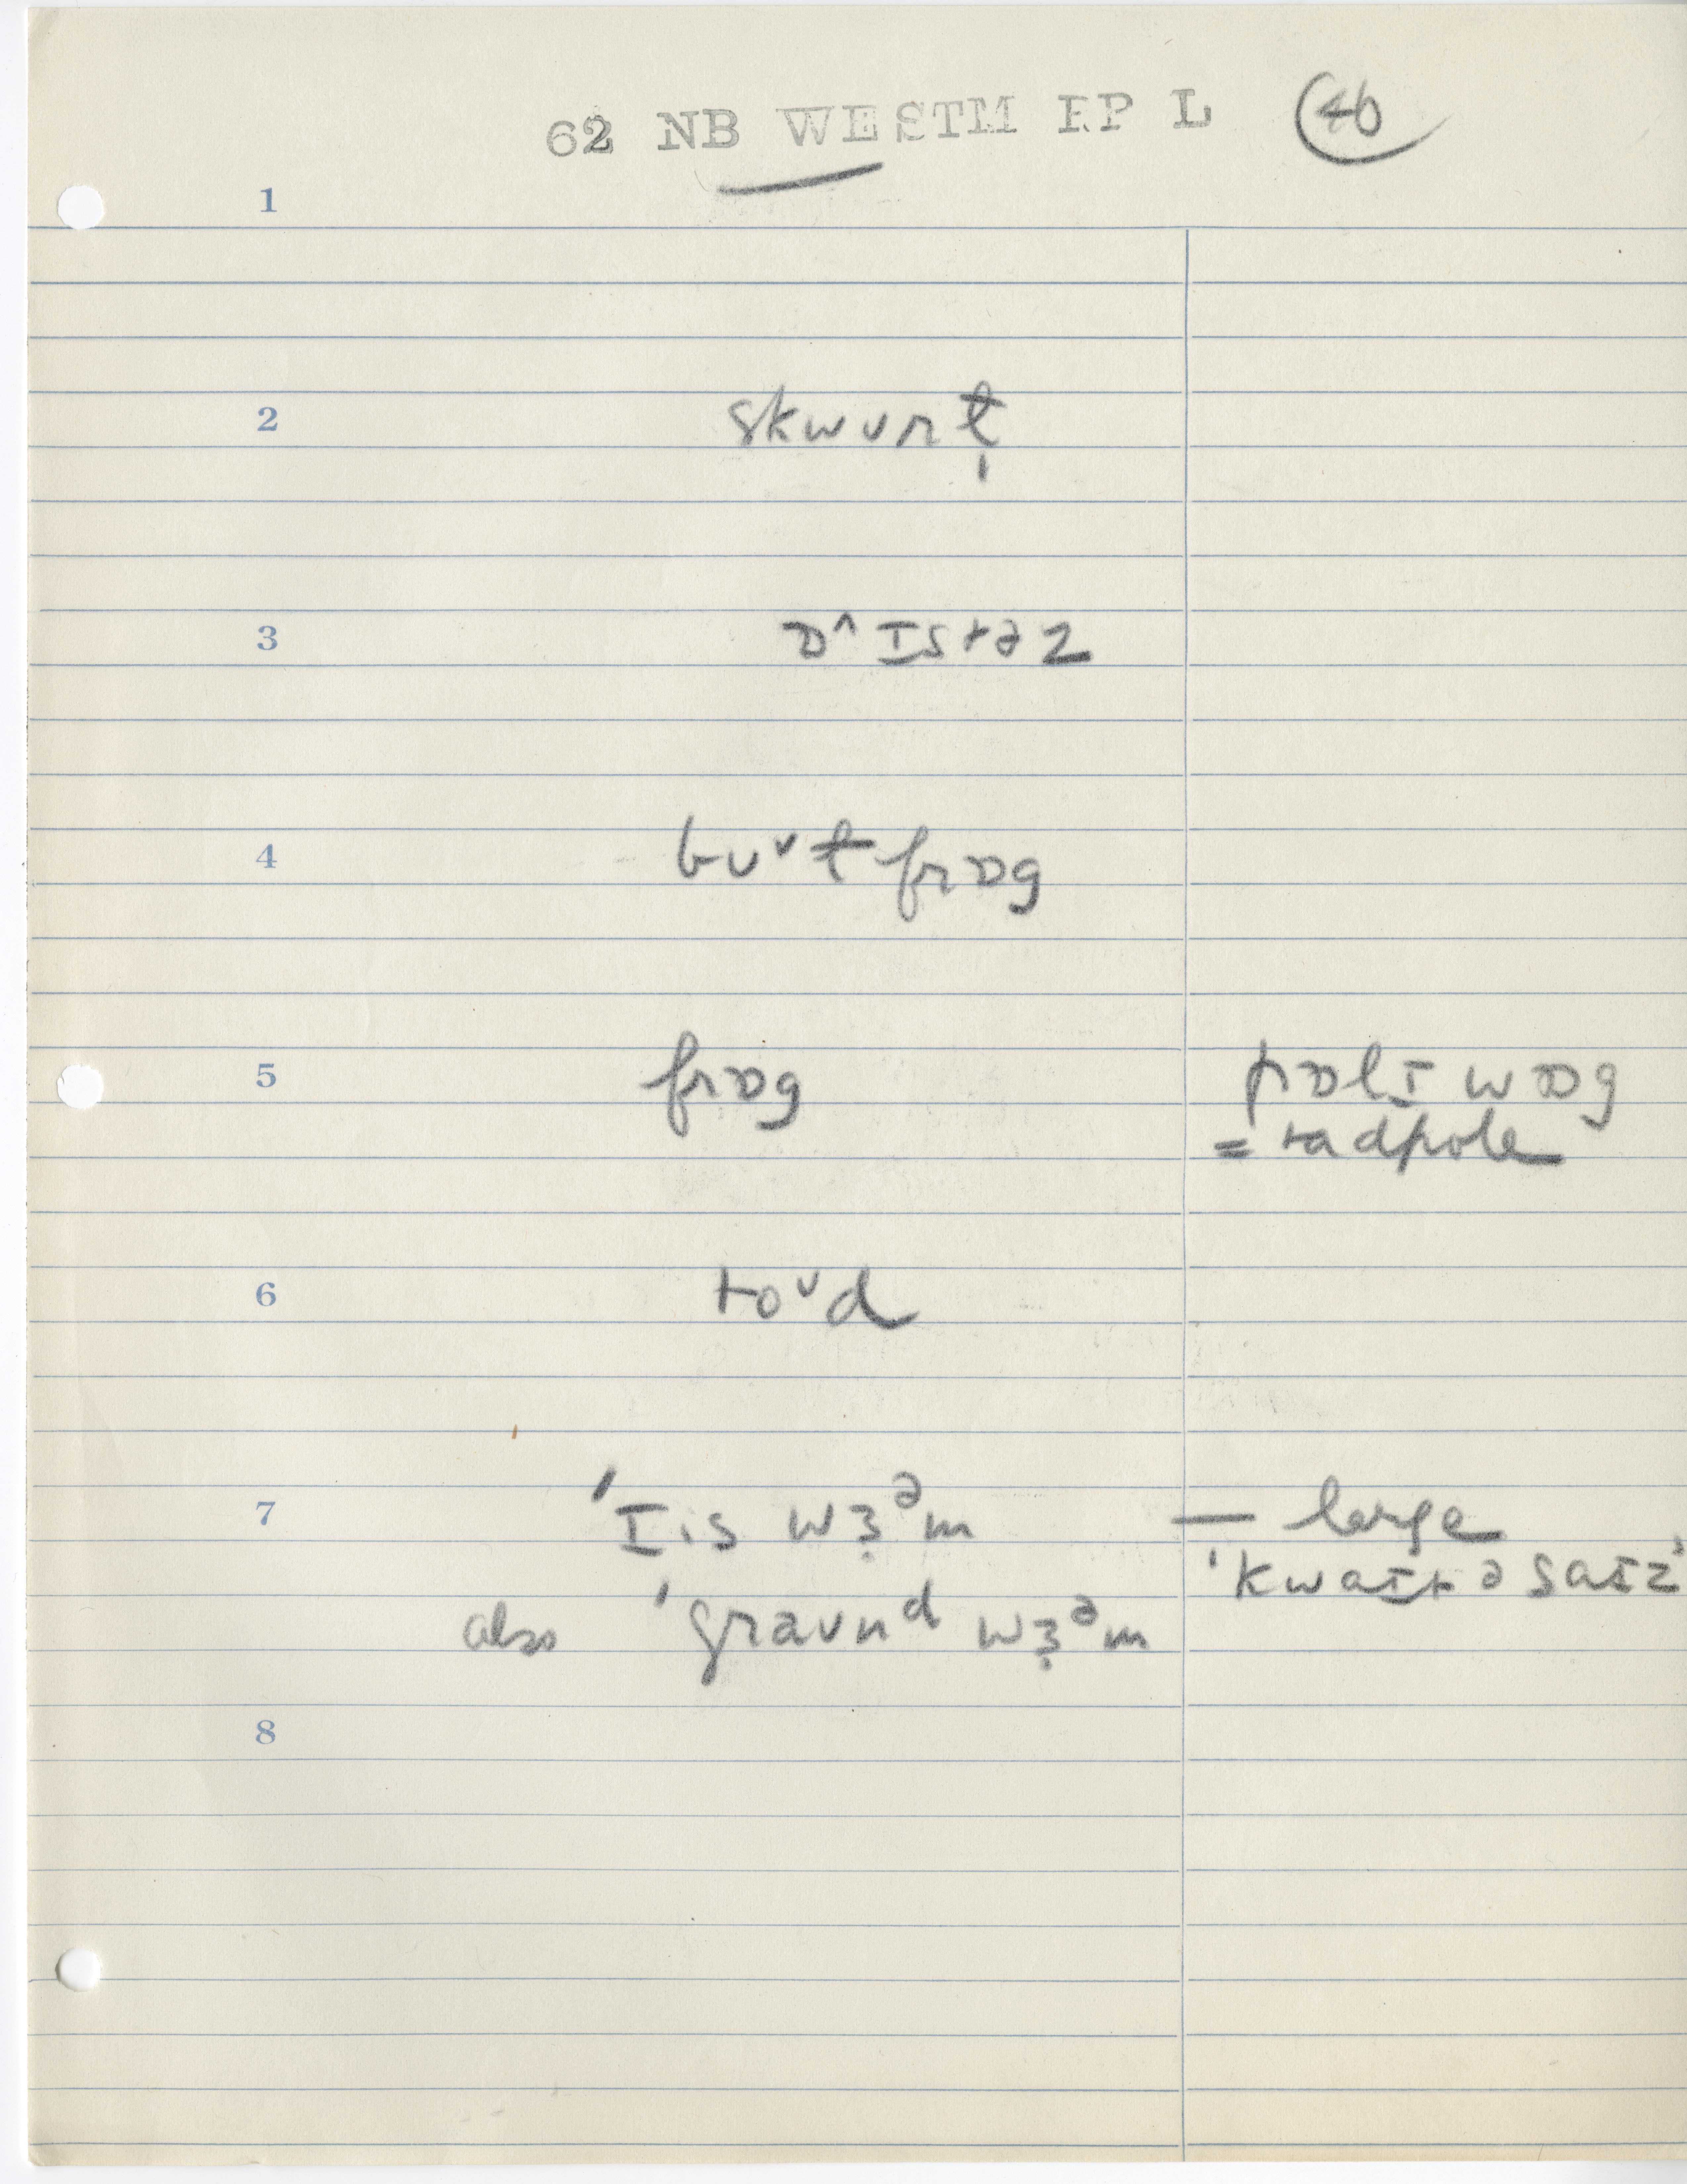 62 NB WESTM RP L 46
1
2 skwʊrɫ̩
3 ɒ^ɪstəz
4 bʊᵛɫfrɒg
5 frɒg pɒlɪwɒg
= tadpole
6 toᶷd
7 ˈɪ.s wɜ̣ᵊm — large
ˈkwaɪt ə saɪz'
also ˈgraʊnᵈ wɜ̣ᵊm
8